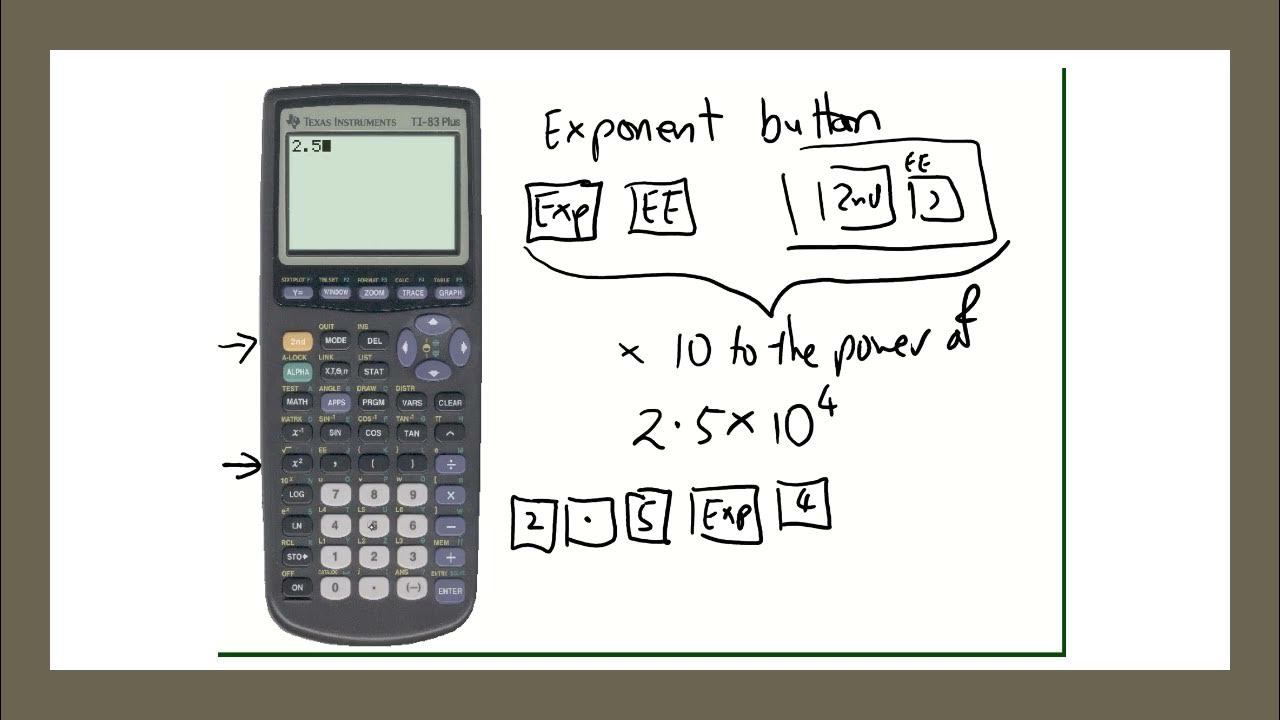 TEXAS INSTRUMENTS TI-83 Plus
2.5
STAT PLOT F1 TBLSET F2 FORMAT F3 CALC F4 TABLE F5
Y= WINDOW ZOOM TRACE GRAPH
QUIT INS
2nd MODE DEL
A-LOCK LINK LIST
ALPHA X,T,θ,n STAT
TEST A ANGLE B DRAW C DISTR
MATH APPS PRGM VARS CLEAR
MATRX D SIN⁻¹ E COS⁻¹ F TAN⁻¹ G π H
x⁻¹ SIN COS TAN ^
√ I EE J { K } L e M
x² , ( ) ÷
10ˣ N u O v P w Q [ R
LOG 7 8 9 ×
eˣ S L4 T L5 U L6 V ] W
LN 4 5 6 −
RCL X L1 Y L2 Z L3 θ MEM "
STO▸ 1 2 3 +
OFF CATALOG i : ANS ? ENTRY SOLVE
ON 0 . (−) ENTER
Exponent button
EE
Exp EE 2nd ,
× 10 to the power of
2.5×10⁴
2 . 5 Exp 4